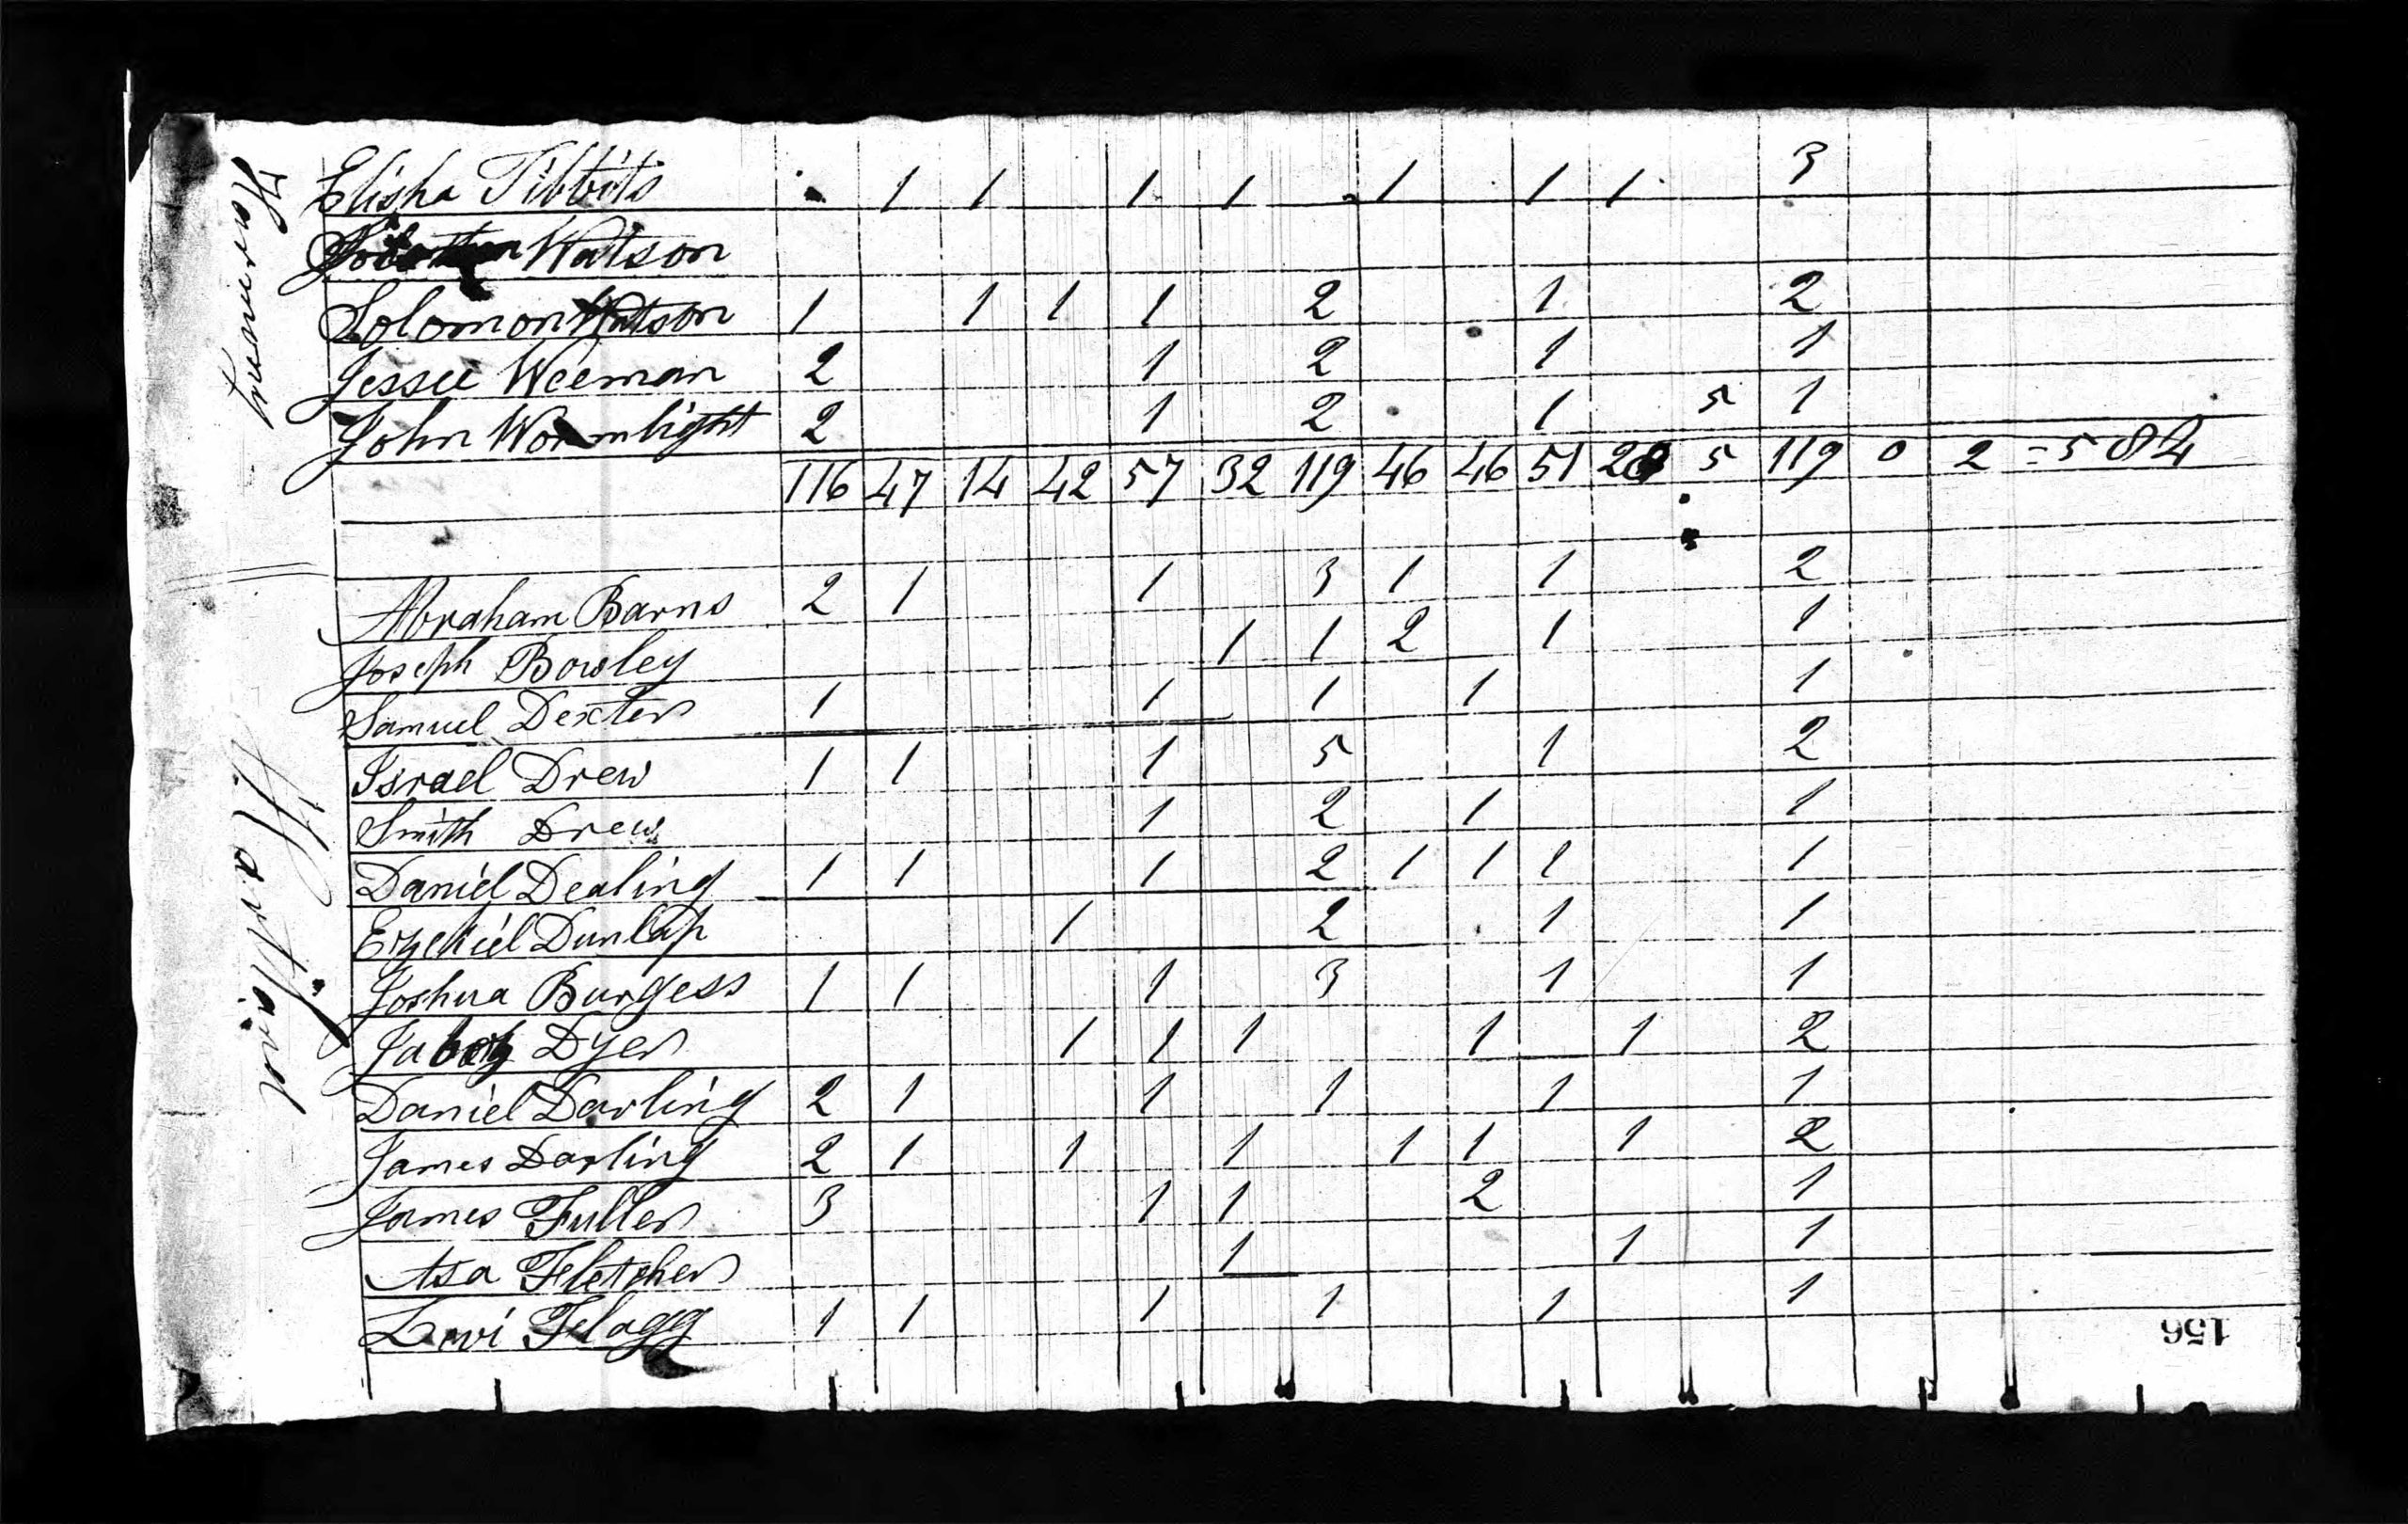 Elisha Tibbits 1 1 1 1 1 1 1 3
Watson
Solomon Watson 1 1 1 1 2 1 2
Jessee Weeman 2 1 2 1 1
John Wormlight 2 1 2 1 5 1
116 47 14 42 57 32 119 46 46 51 20 5 119 0 2 = 584
Abraham Barns 2 1 1 3 1 1 2
Joseph Bowley 1 1 2 1 1
Samuel Dexter 1 1 1 1 1
Israel Drew 1 1 1 5 1 2
Smith Drew 1 2 1 1
Daniel Dealing 1 1 1 2 1 1 1 1
Ezekiel Dunlap 1 2 1 1
Joshua Burgess 1 1 1 3 1 1
Dyer 1 1 1 1 1 2
Daniel Darling 2 1 1 1 1 1
James Darling 2 1 1 1 1 1 1 2
James Fuller 3 1 1 2 1
Asa Fletcher 1 1 1
Levi Flagg 1 1 1 1 1 1
156